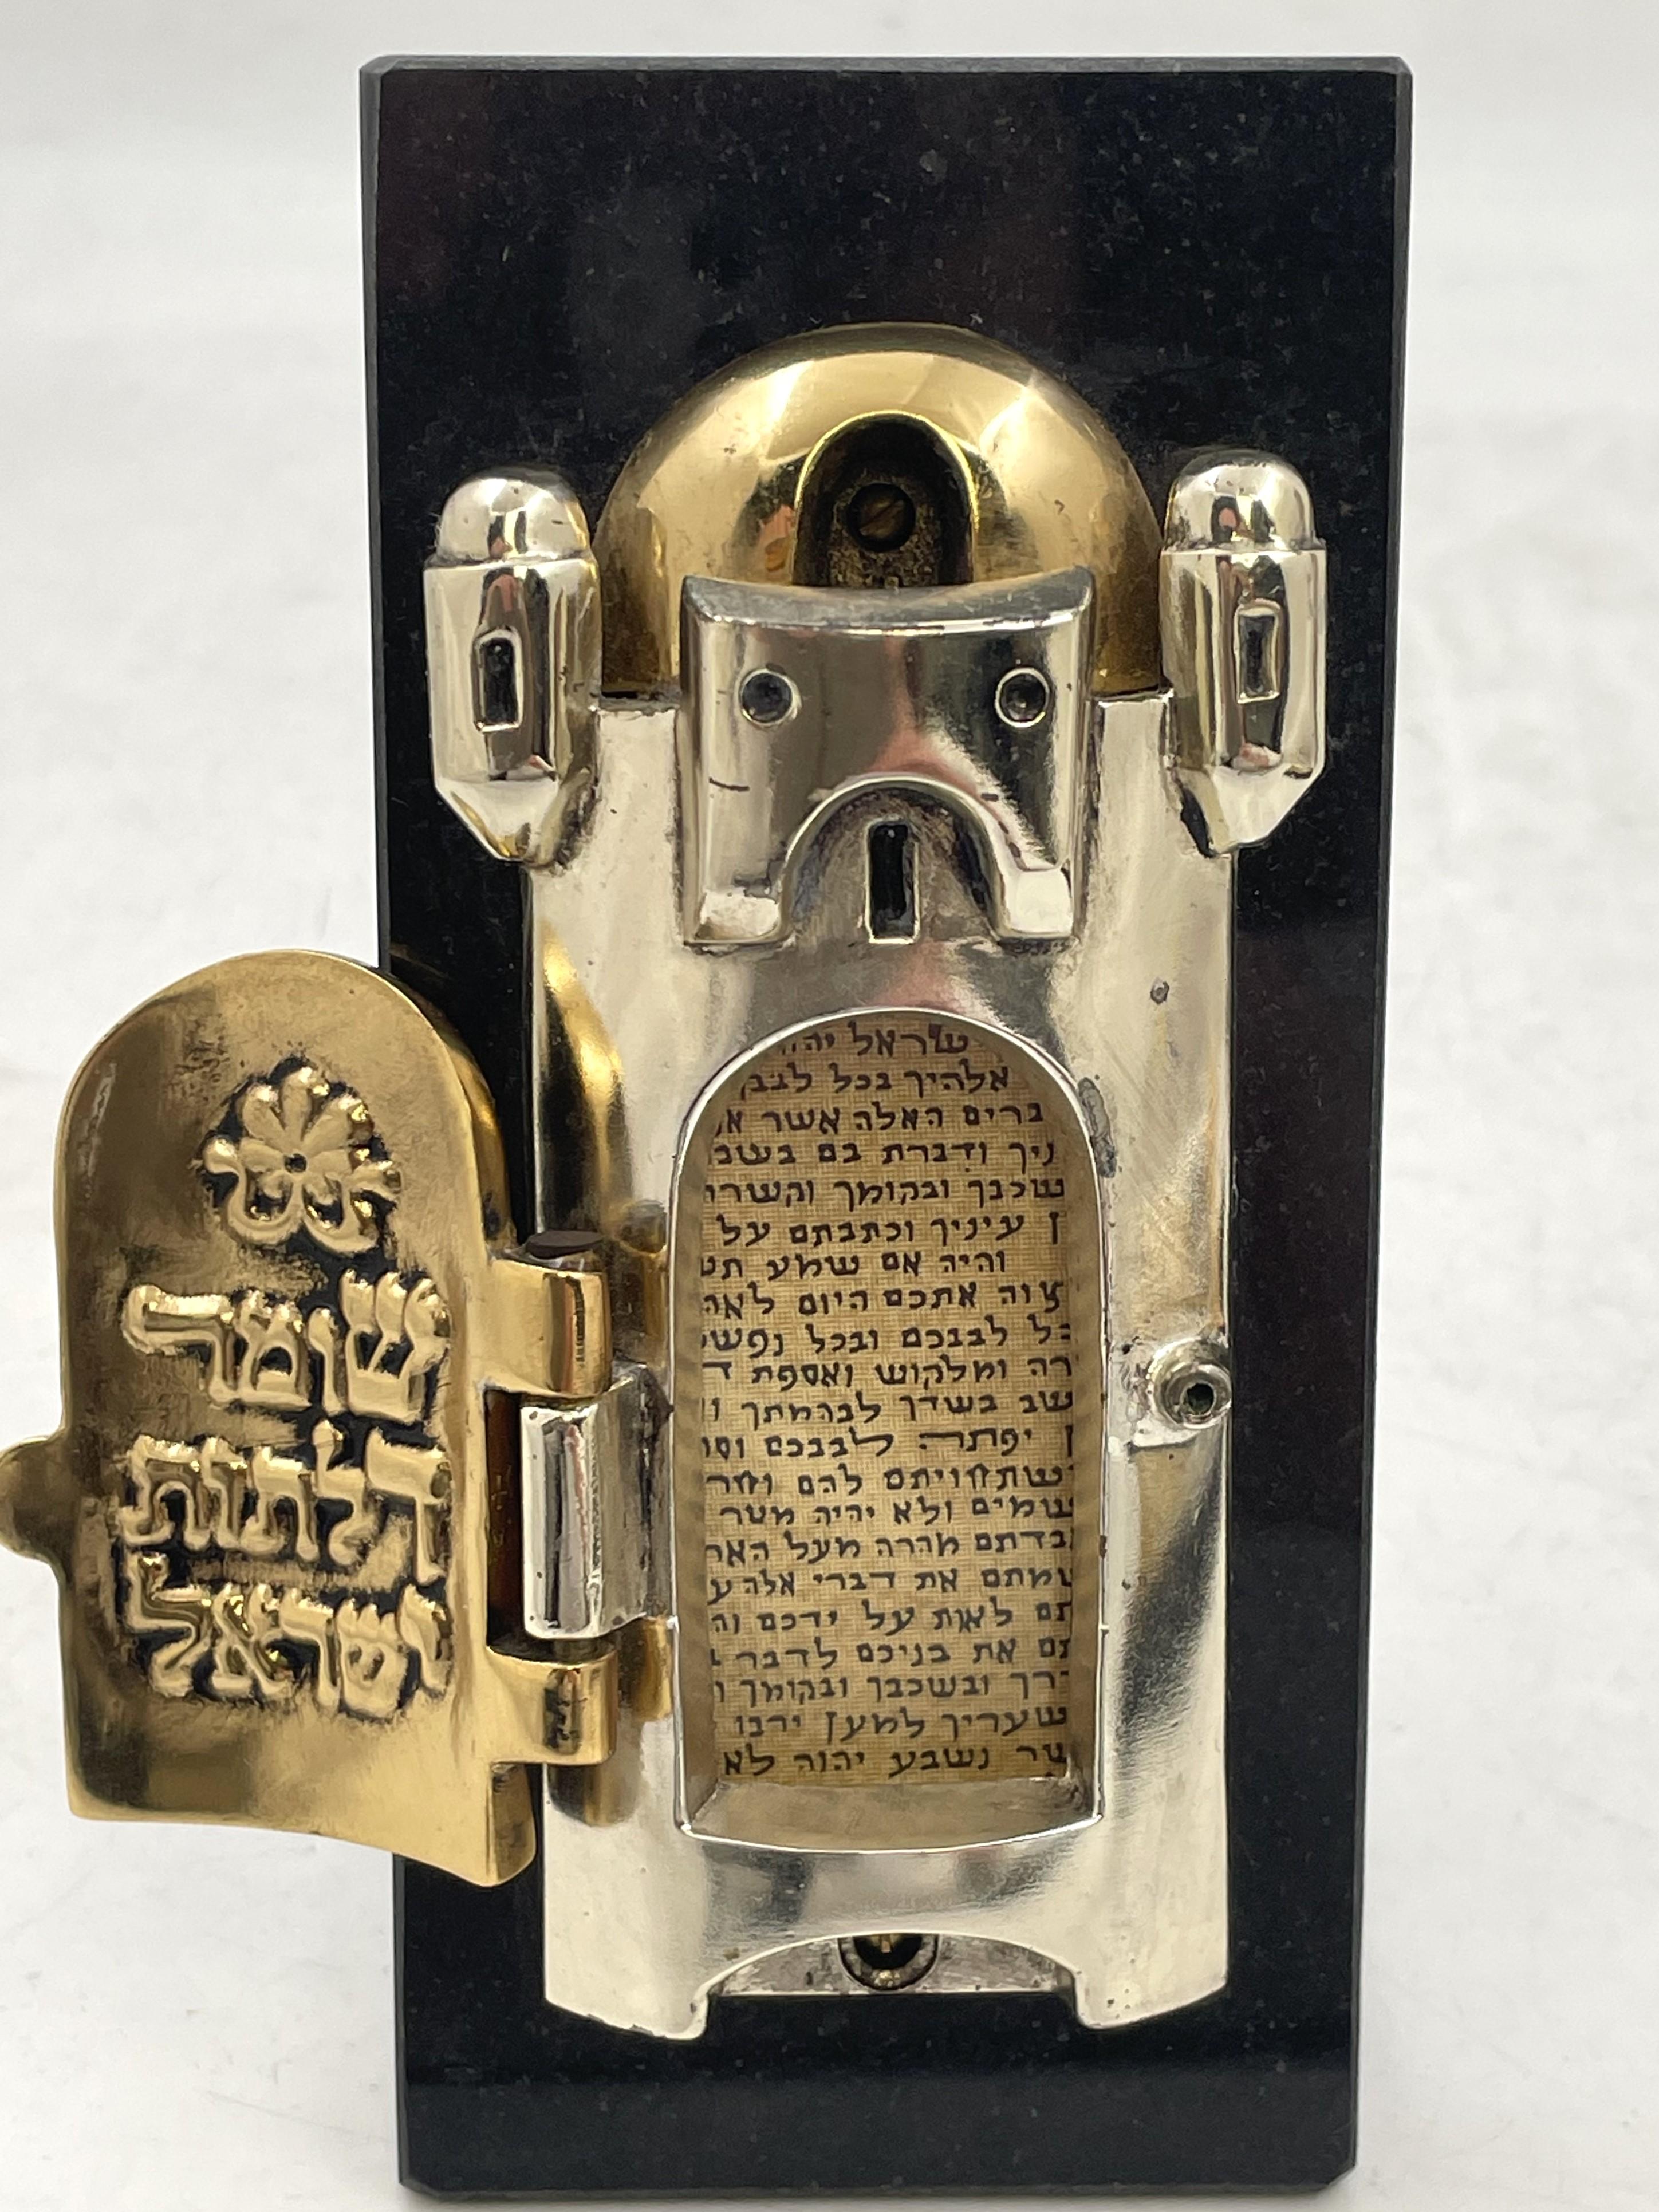 שומר
דלתות
ישראל
שראל יהו
אלהיך בכל לבבך
ברים האלה אשר א
ניך ודברת בם בשב
שכבך ובקומך וקשרת
ן עיניך וכתבתם על
והיה אם שמע תש
צוה אתכם היום לאה
כל לבבכם ובכל נפשכ
רה ומלקוש ואספת ד
שב בשדך לבהמתך ו
ן יפתה לבבכם וסר
שתחויתם להם וחר
שמים ולא יהיה מטר
בדתם מהרה מעל האר
שמתם את דברי אלה ע
תם לאות על ידכם וה
תם את בניכם לדבר ב
דרך ובשכבך ובקומך ו
שעריך למען ירבו
שר נשבע יהוה לא